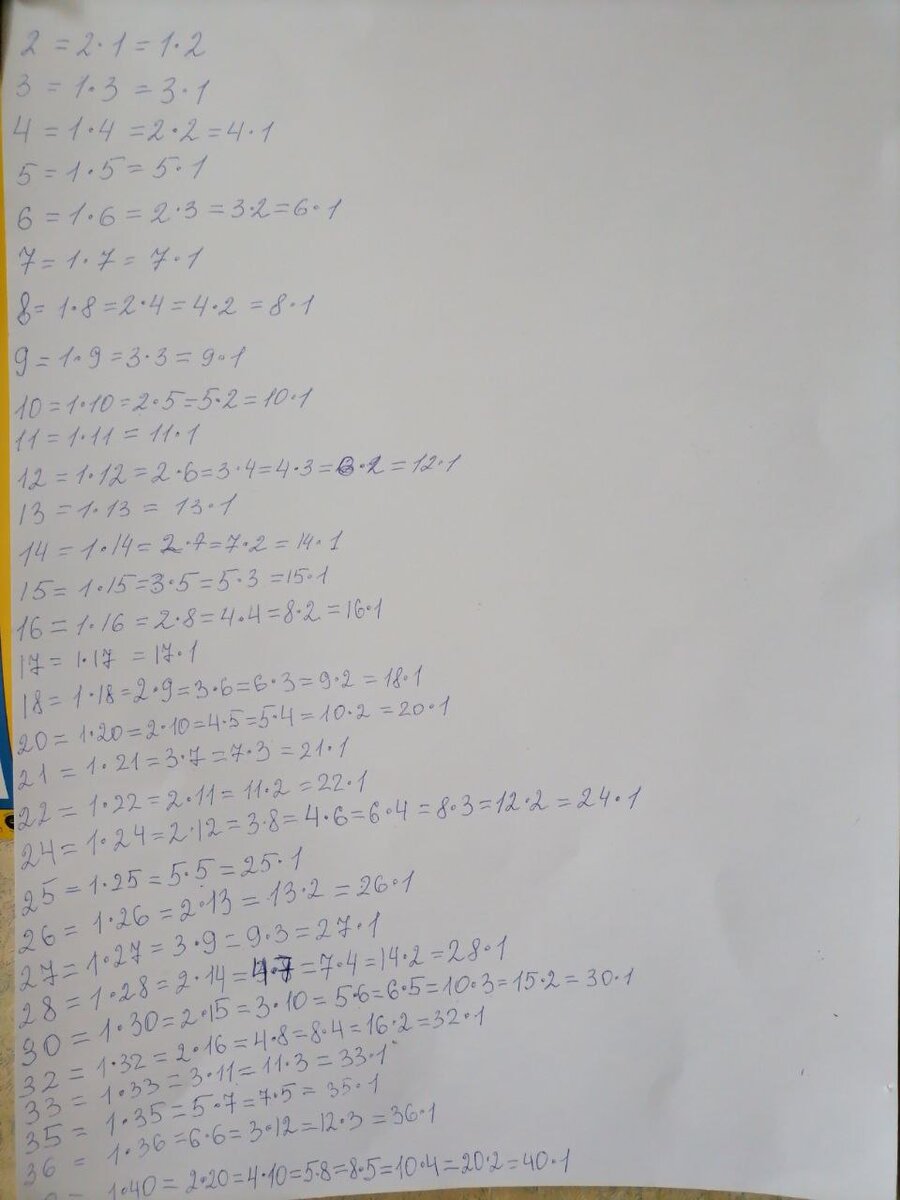 2 = 2·1 = 1·2
3 = 1·3 = 3·1
4 = 1·4 = 2·2 = 4·1
5 = 1·5 = 5·1
6 = 1·6 = 2·3 = 3·2 = 6·1
7 = 1·7 = 7·1
8 = 1·8 = 2·4 = 4·2 = 8·1
9 = 1·9 = 3·3 = 9·1
10 = 1·10 = 2·5 = 5·2 = 10·1
11 = 1·11 = 11·1
12 = 1·12 = 2·6 = 3·4 = 4·3 = 6·2 = 12·1
13 = 1·13 = 13·1
14 = 1·14 = 2·7 = 7·2 = 14·1
15 = 1·15 = 3·5 = 5·3 = 15·1
16 = 1·16 = 2·8 = 4·4 = 8·2 = 16·1
17 = 1·17 = 17·1
18 = 1·18 = 2·9 = 3·6 = 6·3 = 9·2 = 18·1
20 = 1·20 = 2·10 = 4·5 = 5·4 = 10·2 = 20·1
21 = 1·21 = 3·7 = 7·3 = 21·1
22 = 1·22 = 2·11 = 11·2 = 22·1
24 = 1·24 = 2·12 = 3·8 = 4·6 = 6·4 = 8·3 = 12·2 = 24·1
25 = 1·25 = 5·5 = 25·1
26 = 1·26 = 2·13 = 13·2 = 26·1
27 = 1·27 = 3·9 = 9·3 = 27·1
28 = 1·28 = 2·14 = 4·7 = 7·4 = 14·2 = 28·1
30 = 1·30 = 2·15 = 3·10 = 5·6 = 6·5 = 10·3 = 15·2 = 30·1
32 = 1·32 = 2·16 = 4·8 = 8·4 = 16·2 = 32·1
33 = 1·33 = 3·11 = 11·3 = 33·1
35 = 1·35 = 5·7 = 7·5 = 35·1
36 = 1·36 = 6·6 = 3·12 = 12·3 = 36·1
= 1·40 = 2·20 = 4·10 = 5·8 = 8·5 = 10·4 = 20·2 = 40·1